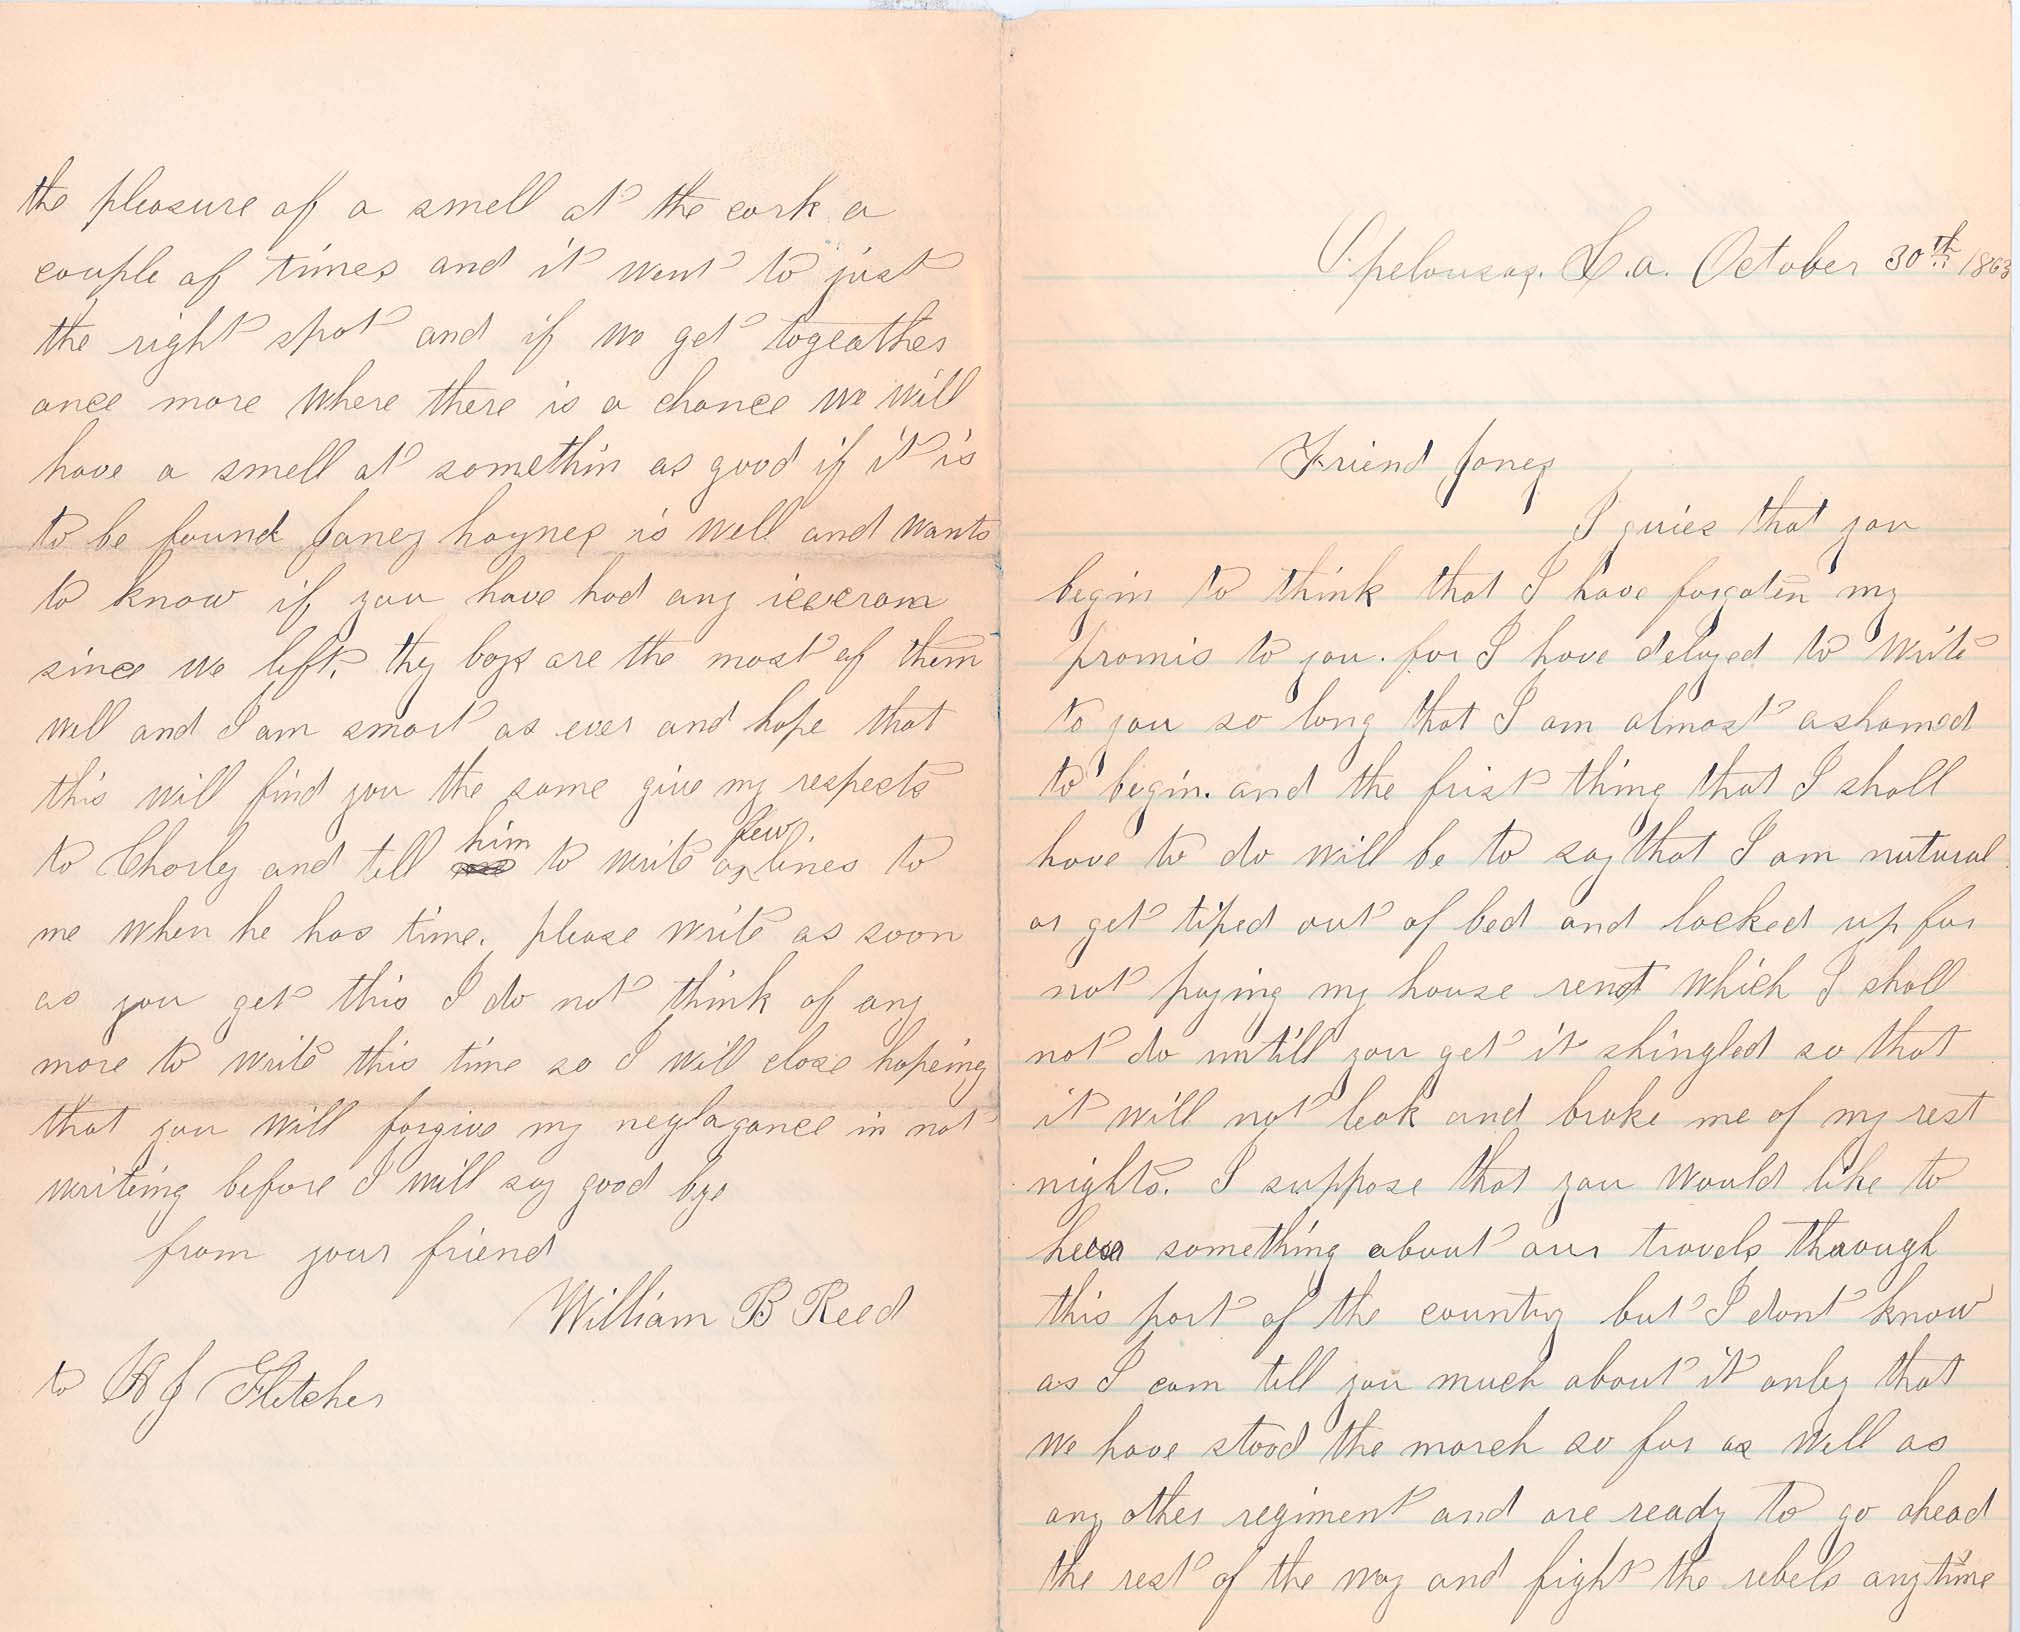 Opelousas. L.a. October 30th 1863
Friend Jones
I guies that you
begin to think that I have forgoten my
promis to you. for I have delayed to write
to you so long that I am almost ashamed
to begin. and the frist thing that I shall
have to do will be to say that I am nutural
or get tiped out of bed and locked up for
not paying my house rent which I shall
not do untill you get it shingled so that
it will not leak and brake me of my rest
nights. I suppose that you would like to
something about our travels through
this part of the country but I dont know
as I can tell you much about it only that
we have stood the march so far as well as
any other regiment and are ready to go ahead
the rest of the way and fight the rebels anytime
the pleasure of a smell at the cork a
couple of times and it went to just
the right spot and if we get togeather
once more where there is a chance we will
have a smell at somethin as good if it is
to be found Jones haynes is well and wants
to know if you have had any icecram
since we left. thy boys are the most of them
well and I am smart as ever and hope that
this will find you the same give my respects
to Charley and tell him to write a few lines to
me when he has time. please write as soon
as you get this I do not think of any
more to write this time so I will close hopeing
that you will forgive my neglagance in not
writing before I will say good bye
from your friend
William B Reed
to H J Fletcher